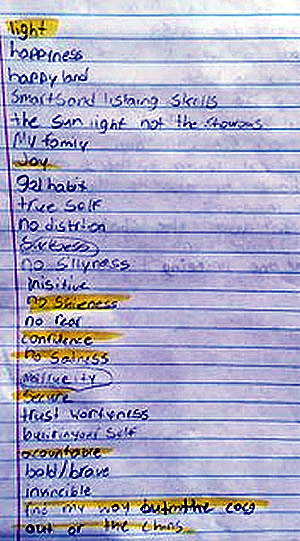 light
happiness
happy land
Smarts and listaing Skills
the sun light not the showous
My famly
Joy
gal habit
true Self
no distrtion
no Sillyness
inisitive
no Shieness
no fear
confidence
no Satness
Secure
trust wortyness
bustinyour Self
acountable
bold/brave
invincible
my way out
out or the